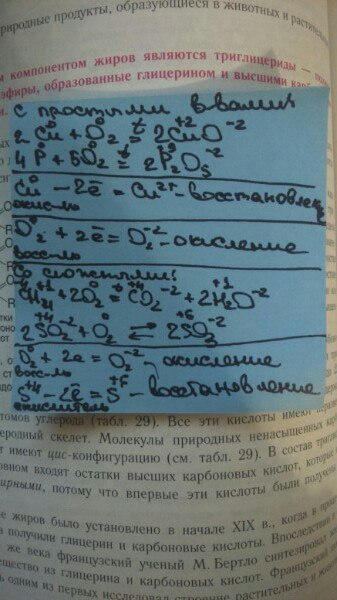 риродные продукты, образующиеся в животных и растител
м компонентом жиров являются триглицериды — полн
эфиры, образованные глицерином и высшими карб
С простыми в-вами:
2Cu⁰ + O₂⁰ =ᵗ 2Cu⁺²O⁻²
4P⁰ + 5O₂⁰ =ᵗ 2P₂O₅⁻²
Cu⁰ – 2ē = Cu²⁺ – восстановлен
окис-ль
O₂⁰ + 2ē = O₂⁻² – окисление
восс-ль
Со сложными:
CH₄ + 2O₂⁰ = C⁺⁴O₂⁻² + 2H₂⁺¹O⁻²
2S⁺⁴O₂⁻² + O₂⁰ ⇄ 2S⁺⁶O₃⁻²
O₂⁰ + 2ē = O₂⁻² – окисление
восс-ль
S⁺⁴ – 2ē = S⁺⁶ – восстановление
окислитель
томов углерода (табл. 29). Все эти кислоты имеют
еродный скелет. Молекулы природных ненасыщенных
т имеют цис-конфигурацию (см. табл. 29). В состав триг
овном входят остатки высших карбоновых кислот, которые
ирными, потому что впервые эти кислоты были получены
е жиров было установлено в начале XIX в., когда в проц
а получили глицерин и карбоновые кислоты. Впоследствии
же века французский ученый М. Бертло синтезировал
ещество из глицерина и карбоновых кислот. Французский
ь одним из первых исследовал строение растительных и живот